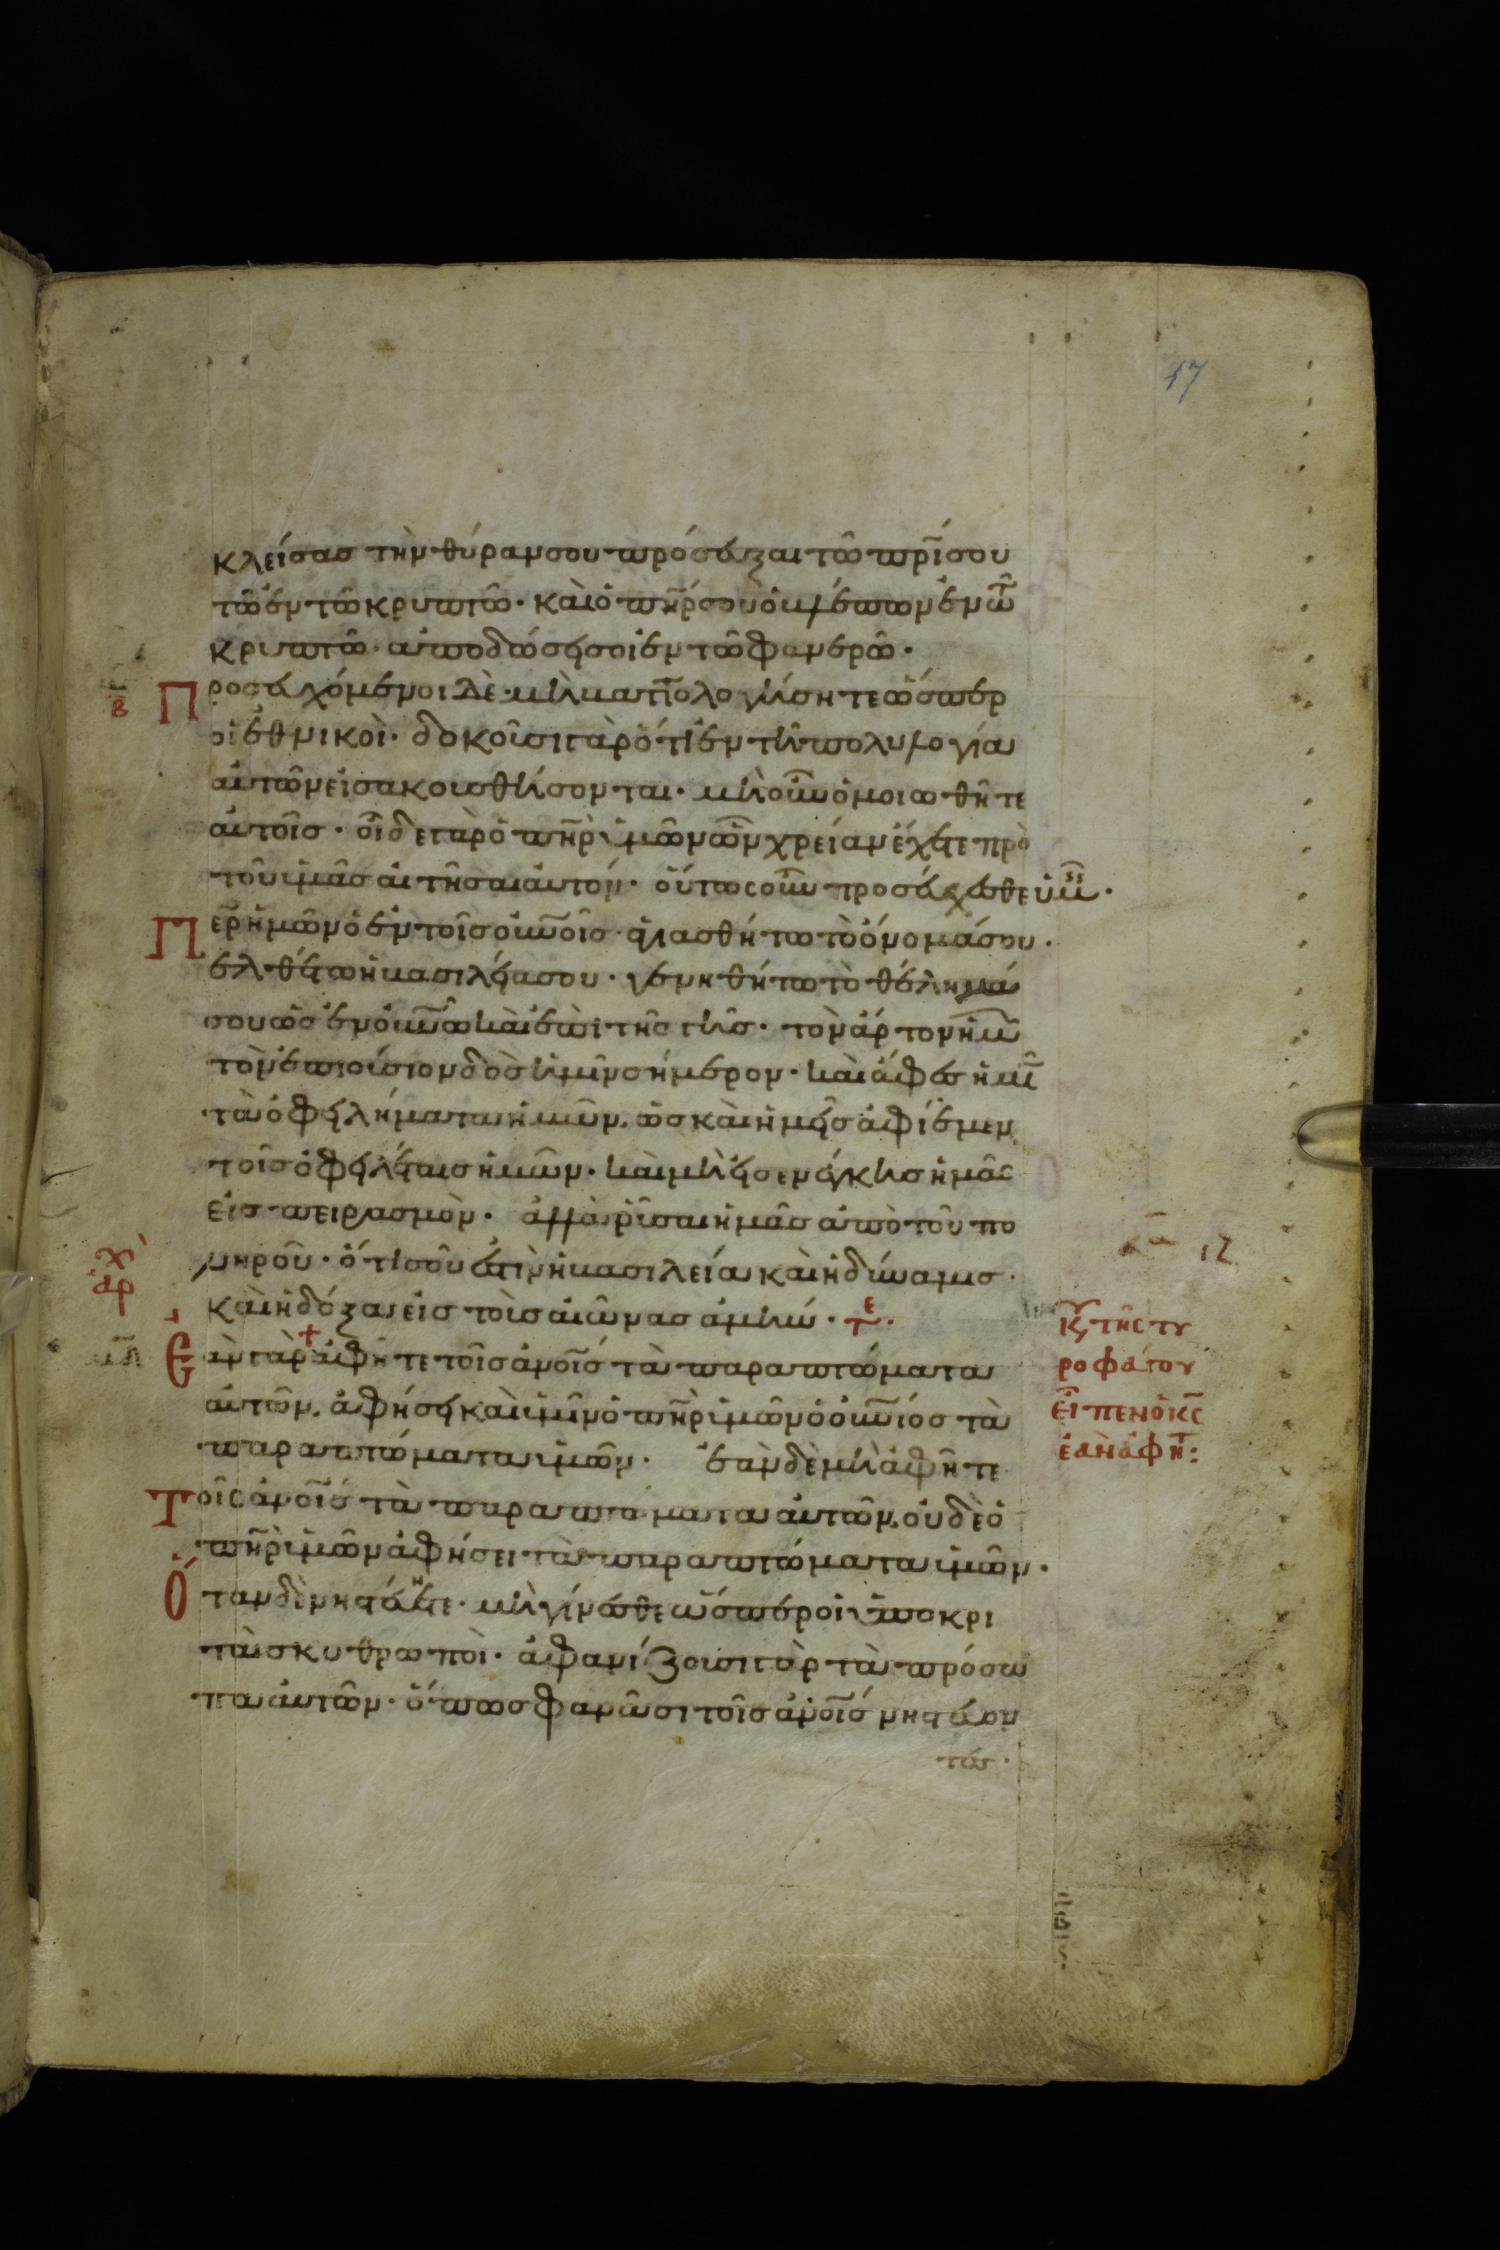 17
κλείσασ τὴν θύραν σου πρόσευξαι τῶ πρί σου
τῶ ἐν τῶ κρυπτῶ· καὶ ὁ πῆρ σου ὁ βλέπων ἐν τῶ
κρυπτῶ· ἀποδώσει σοι ἐν τῶ φανερῶ·
Προσευχόμενοι δὲ· μὴ βατολογήσητε ὥσπερ
οἱ ἐθνικοὶ· δοκοῦσι γὰρ ὅτι ἐν τῆ πολυλογία
αὐτῶν εἰσακουσθήσονται· μὴ οὖν ὁμοιωθῆτε
αὐτοῖσ· οἶδε γὰρ ὁ πῆρ ὑμῶν ὧν χρείαν ἔχετε πρὸ
τοῦ ὑμᾶσ αἰτῆσαι αὐτόν· οὕτωσ οὖν προσεύχεσθε ὑμεῖσ·
Περ ἡμῶν ὁ ἐν τοῖσ οὐνοῖσ· ἁγιασθήτω τὸ ὄνομά σου·
ἐλθέτω ἡ βασιλεία σου· γενηθήτω τὸ θέλημά
σου ὡσ ἐν οὐνῶ καὶ ἐπὶ τῆσ γῆσ· τὸν ἄρτον ἡμῶν
τὸν ἐπιούσιον δὸσ ἡμῖν σήμερον· καὶ ἄφεσ ἡμῖν
τὰ ὀφειλήματα ἡμῶν, ὡσ καὶ ἡμεῖσ ἀφίεμεν
τοῖσ ὀφειλέταισ ἡμῶν· καὶ μὴ εἰσενέγκησ ἡμᾶσ
εἰσ πειρασμὸν· ἀλλὰ ῥῦσαι ἡμᾶσ ἀπὸ τοῦ πο
νηροῦ· ὅτι σοῦ ἐστὶν ἡ βασιλεία καὶ ἡ δύναμισ·
καὶ ἡ δόξα εἰσ τοὺσ αἰῶνασ ἀμήν· τε·
Ἐὰν γὰρ ἀφῆτε τοῖσ ἀνοῖσ τὰ παραπτώματα
αὐτῶν, ἀφήσει καὶ ὑμῖν ὁ πῆρ ὑμῶν ὁ οὐνιόσ τὰ
παραπτώματα ὑμῶν· ἐὰν δὲ μὴ ἀφῆτε
Τοῖσ ἀνοῖσ τὰ παραπτώματα αὐτῶν, οὐδὲ ὁ
πῆρ ὑμῶν ἀφήσει τὰ παραπτώματα ὑμῶν·
Ὅταν δὲ νηστεύητε· μὴ γίνεσθε ὥσπερ οἱ ὑποκρι
ταὶ σκυθρωποὶ· ἀφανίζουσι γὰρ τὰ πρόσω
πα αὐτῶν· ὅπωσ φανῶσι τοῖσ ἀνοῖσ νηστεύον
τεσ·
ἀρ
Κυ τῆς τυ
ροφάγου
εἶπεν ὁ κς
ἐὰν ἀφῆτ: